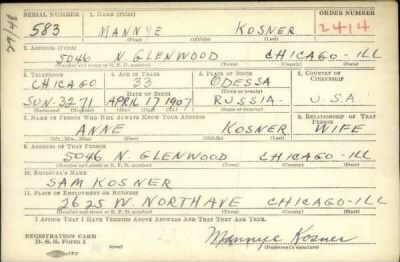 SERIAL NUMBER 1. NAME (Print) ORDER NUMBER
583 MANNYE KOSNER 2414
(First) (Middle) (Last)
2. ADDRESS (Print)
5046 N. GLENWOOD CHICAGO - ILL
(Number and street or R. F. D. number) (Town) (County) (State)
3. TELEPHONE 4. AGE IN YEARS 5. PLACE OF BIRTH 6. COUNTRY OF CITIZENSHIP
CHICAGO 33 ODESSA
DATE OF BIRTH (Town or county)
SUN-3271 APRIL 17 1907 RUSSIA. U.S.A
(Exchange) (Number) (Mo.) (Day) (Yr.) (State or country)
7. NAME OF PERSON WHO WILL ALWAYS KNOW YOUR ADDRESS 8. RELATIONSHIP OF THAT PERSON
ANNE KOSNER WIFE
(Mr., Mrs., Miss) (First) (Middle) (Last)
9. ADDRESS OF THAT PERSON
5046 N. GLENWOOD CHICAGO - ILL
(Number and street or R. F. D. number) (Town) (County) (State)
10. EMPLOYER'S NAME
SAM KOSNER
11. PLACE OF EMPLOYMENT OR BUSINESS
2625 W. NORTH AVE CHICAGO - ILL
(Number and street or R. F. D. number) (Town) (County) (State)
I AFFIRM THAT I HAVE VERIFIED ABOVE ANSWERS AND THAT THEY ARE TRUE.
REGISTRATION CARD
D. S. S. Form 1
Mannye Kosner
(Registrant's signature)